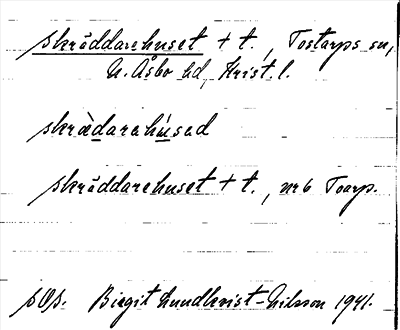 skräddarehuset + t., Tostarps sn,
N. Åsbo hd, Krist. l.
skrädarehúsed
skräddarehuset + t., nr 6 Toarp.
sOs. Birgit Lundkvist-Nilsson 1941.